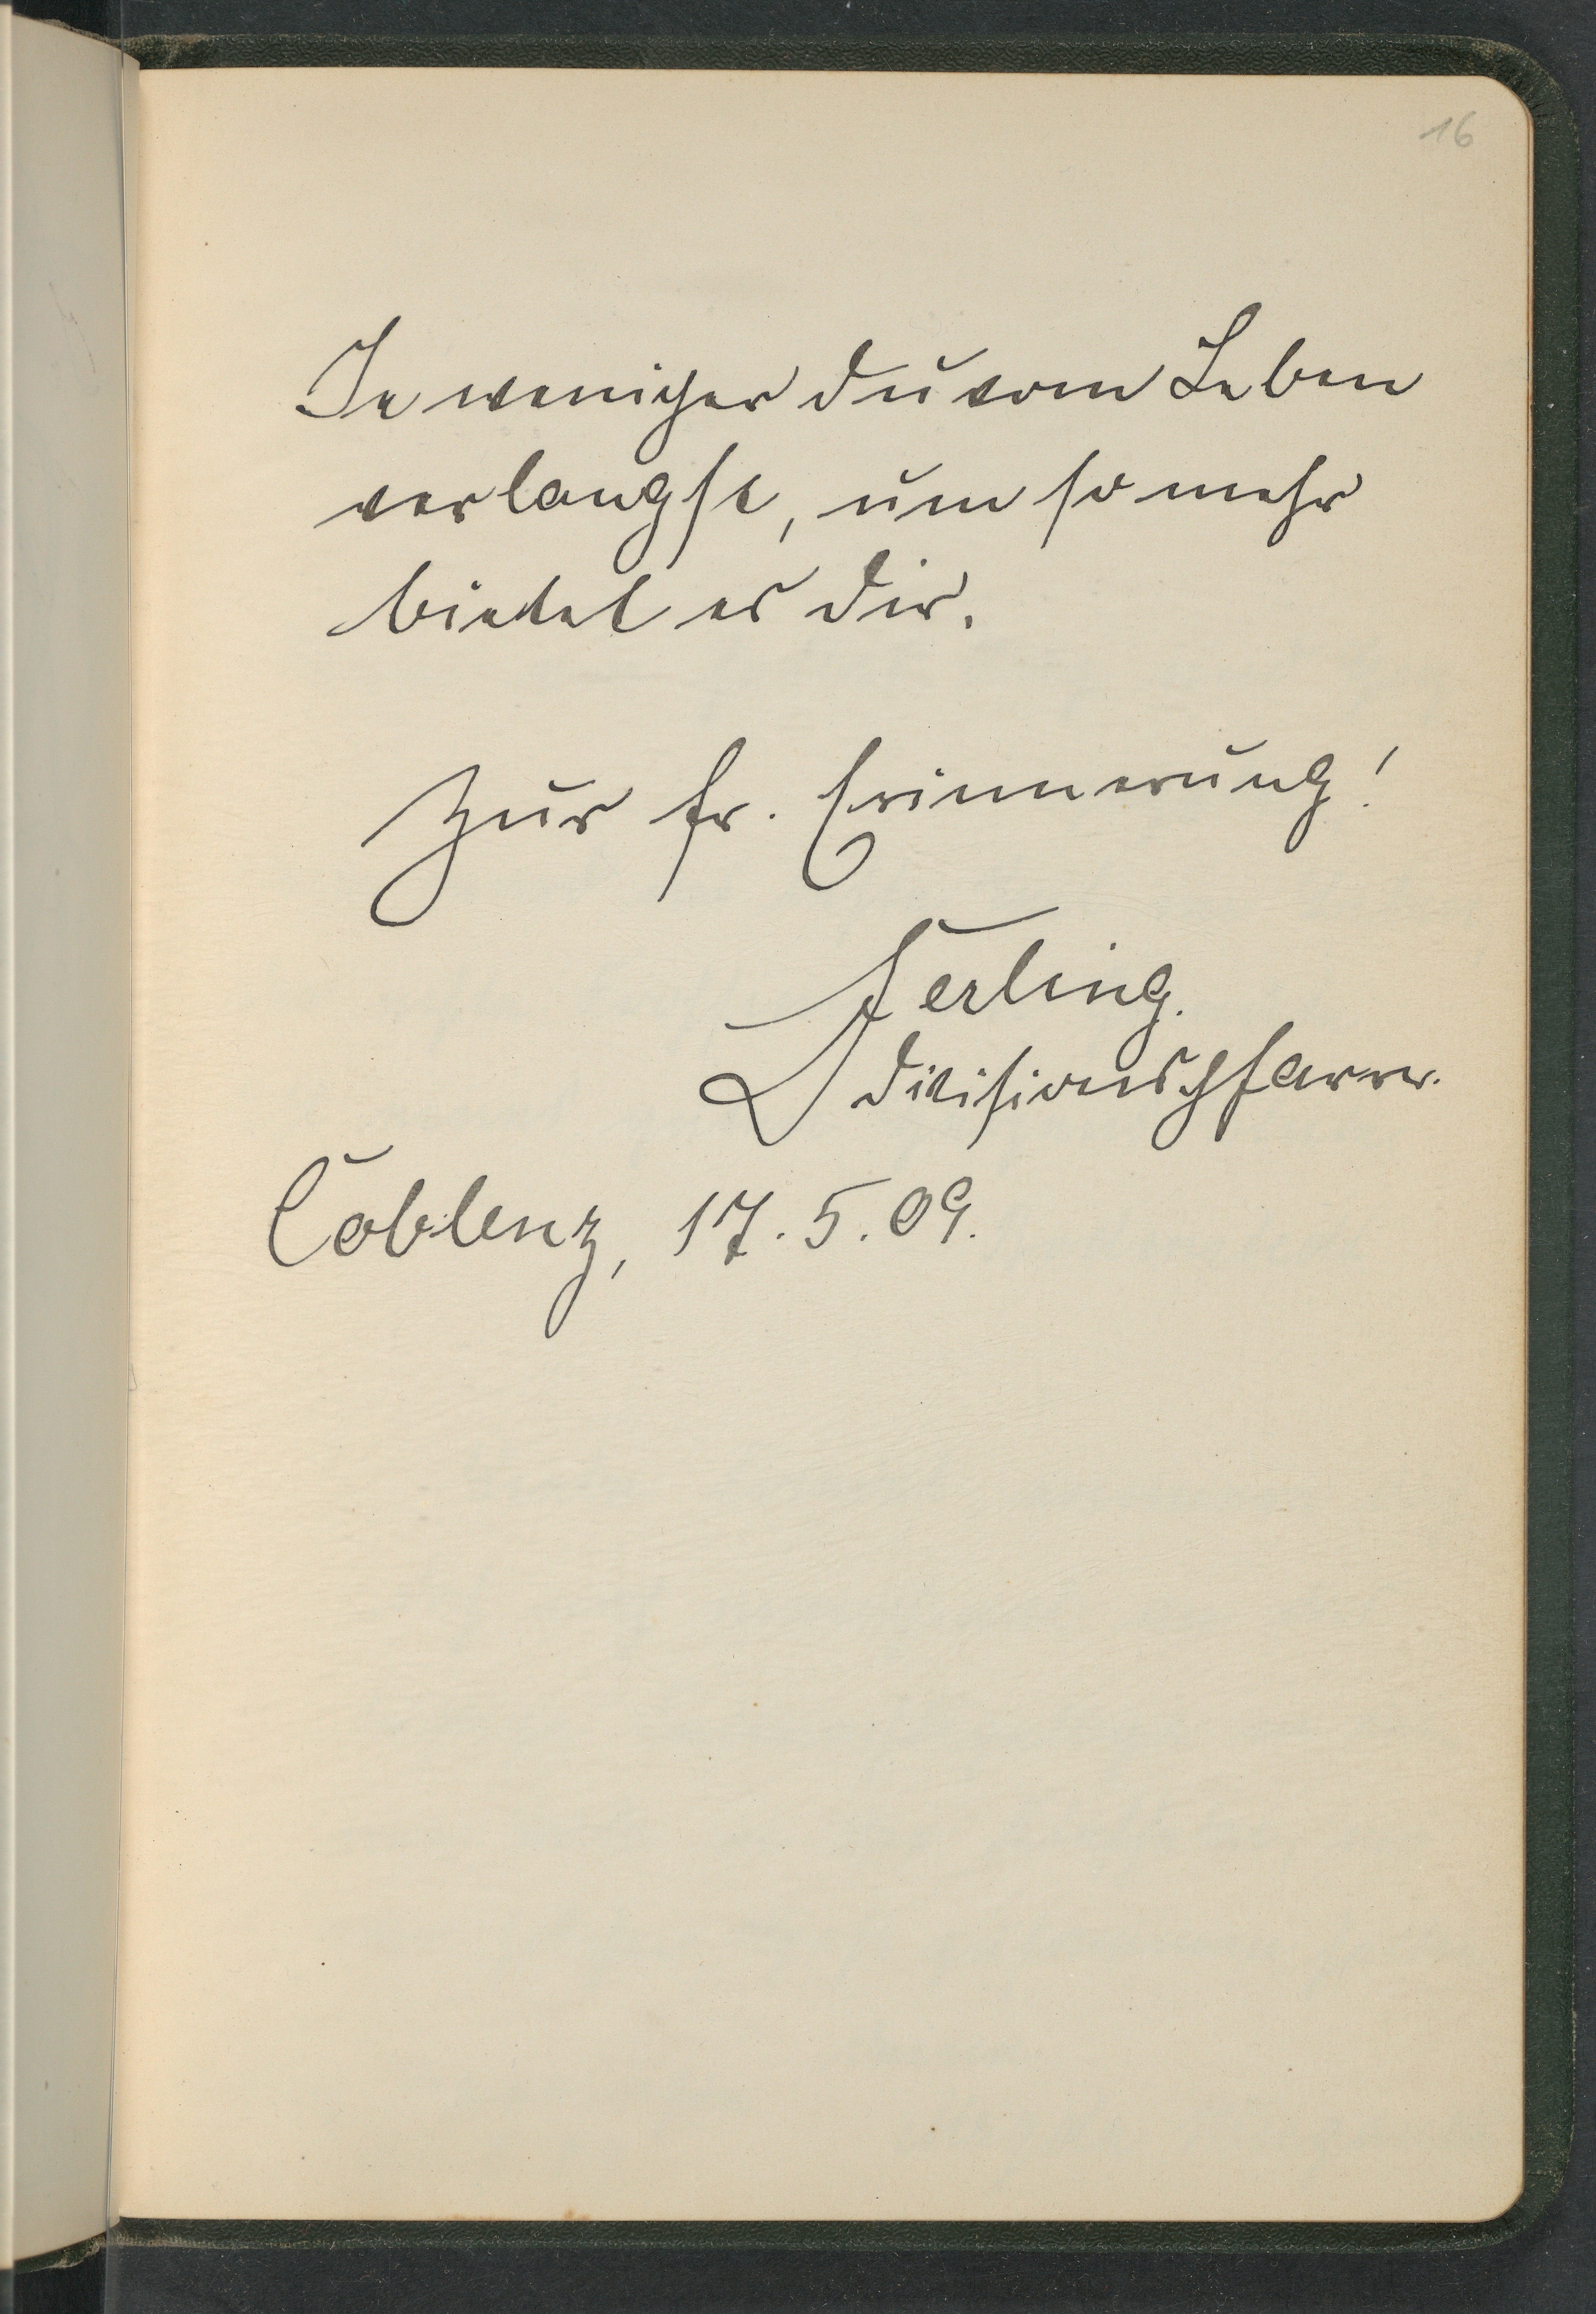 16
Je weniger du vom Leben
verlangst, um so mehr
bietet es dir.
Zur fr. Erinnerung!
Ferling.
Divisionspfarrer.
Coblenz, 17.5.09.